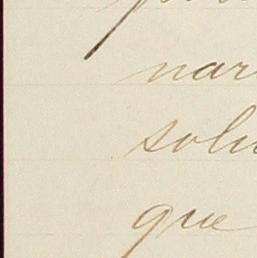 nar
solu
que